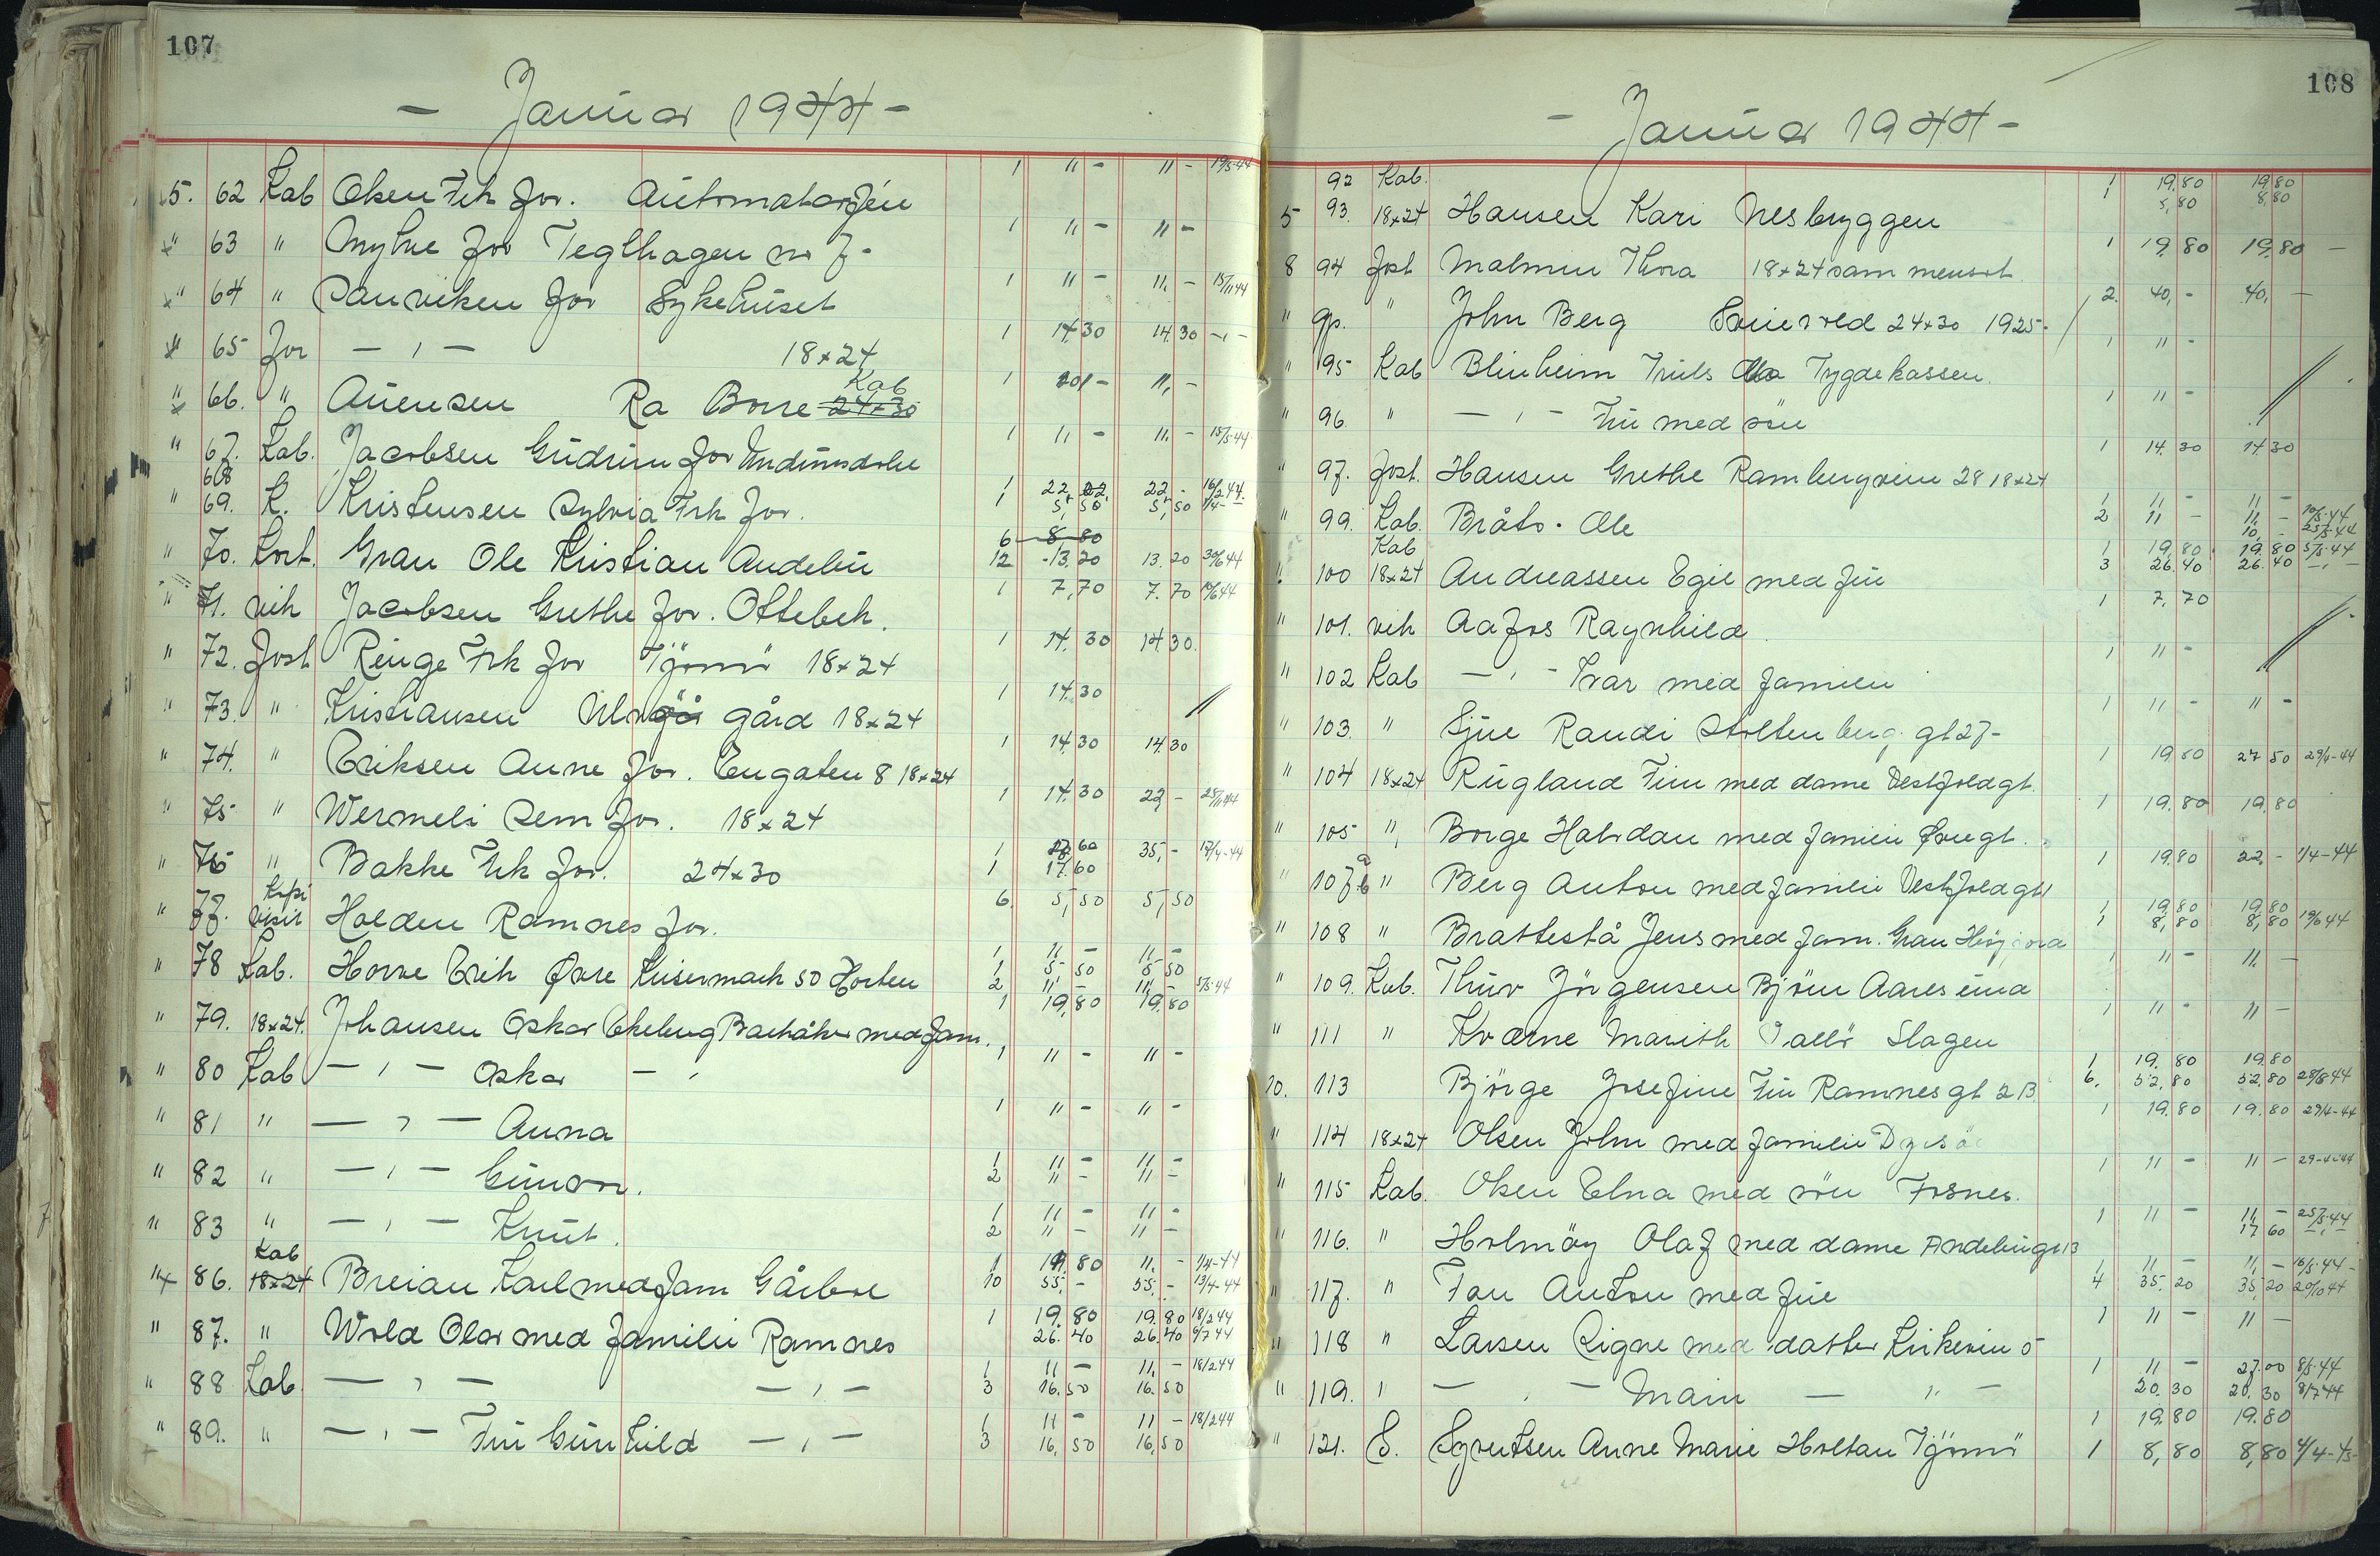 107
- Januar 1944 -
5. 62 Kab Olsen Frk for. Automatavfein 1 11 - 11 - 19/5-44
" 63 " Myhre for Teglhagen no 7 - 1 11 - 11 -
" 64 " Sanviken for Sykehuset 1 11 - 11. - 15/11 44
" 65 for — " — 18x24 1 14.30 14.30 -"-
" 66. " Auensen Ra Borre Kab 24x30 1 11, -
" 67. Kab. Jacobsen Gudrun for 1 11 - 11. - 15/5-44
68 1 22, 22 - 16/2 44.
" 69. K. Kristensen Sylvia Frk for. 1 5,50 5,50
6 8 80
" 70. Kort. Gran Ole Kristian Andebu 12 -13.20 13.20 30/6 44
" 71. vih Jacobsen Grethe for. Ottebek. 1 7,70 7.70 19/6 44
" 72. Post Ringe Frk for Tjømø 18x24 1 14.30 14.30.
" 73. " Kristiansen gård 18x24 1 14.30
" 74. " Eriksen Anne for. Engaten 8 18x24 1 14.30 14.30
" 75 " Wermeli Sem for. 18x24 1 14.30 22 - 25/11 44
" 76 " Bakke Frk for. 24x30 1 17.60 35, - 17/4-44
1 17.60
" 77. Kopi visit Holden Ramnes for. 6. 5,50 5,50
" 78 Kab. Horne Erik Øvre Keisermark 50 Horten 1 11 - 11 -
1 5 50 5 50
2 11, - 11, - 5/5-44
" 79. 18x24. Johansen Oskar Ekeberg Barkåker med fam. 1 19,80 19,80
" 80 Kab — " — Oskar — " 1 11 - 11 -
" 81 " — " — Anna 1 11 - 11 -
" 82 " — " — Gunvor. 1 11 - 11 -
2 11 - 11 -
" 83 " — " — Knut. 1 11 - 11 -
2 11 - 11 -
" 86. Kab 18x24 Breian Karl med fam Gårbo 1 19.80 11, - 1/4-44
10 55, - 55, - 13/4-44
" 87. " Wold Olav med familie Ramnes 1 19.80 19.80 18/2 44
26.40 26.40 9/7 44
" 88 Kab — " — — " — 1 11 - 11, - 18/2 44
3 16.50 16.50
" 89. " — " — Fru Gunhild — " — 1 11 - 11 - 18/2 44
3 16,50 16,50
108
- Januar 1944 -
92 Kab. 1 19.80 19.80
5 93. 18x24 Hansen Kari Nesbryggen 5,80 8,80
8 94 Post Malmin Thora 18x24 sam mensat. 1 19,80 19,80 -
" gp. " John Berg 24x30 1925- 2. 40, - 40, -
" 95 Kab Blinheim Truls Trygdekassen. 1 11 -
" 96. " — " — Fru med søn 1 11 -
" 97. Post. Hansen Grethe Rambergvein 28 18x24 1 14.30 14.30
" 99. Kab. Bråto. Ole 1 11 - 11 -
2 11 - 11, - 10/5-44
10, - 25/5-44
" 100 Kab 18x24 Andreassen Egil med fru 1 19,80 19.80 5/5-44
3 26.40 26.40 -"-
" 101. vih Aafos Ragnhild. 1 7,70
" 102 Kab — " — Ivar med familie 1 11 -
" 103. " Sjue Randi Stoltenberg. gt 27- 1 11 - 11 -
" 104 18x24 Rugland Finn med dame Vestfoldgt. 1 19,80 27 50 29/4-44
" 105 " Borge Halvdan med familie Øvregt. 1 19.80 19.80
" 107 a b " Berg Anton med familie Vestfoldgt 1 19.80 22. - 1/4-44
" 108 " Brattestå Jens med fam. Gran 1 19,80 19,80
1 8,80 8,80 19/6 44
" 109. Kab. Thuv Jørgensen Bjørn Aaresund 1 11 - 11. -
" 111 " Kværne Marith Vallø Slagen 1 11 - 11 -
10. 113 Bjørge Josefine Fru Ramnesgt 2B. 1 19.80 19.80
6. 52,80 52,80 28/8 44
" 114 18x24 Olsen John med familie 1 19.80 19.80 29/4-44
" 115 Kab. Olsen Elna med søn Fosnes. 1 11 - 11 - 29-4-44
" 116. " Holmøy Olaf med dame Andebugt 13 1 11 - 11, - 25/5-44
17 60 -"-
" 117. " Fon Anton med fru 1 11 - 11, - 16/5-44
4 35.20 35,20 20/10 44
" 118 " Larsen Signe med datter Kirkevin 5 1 11 - 11 -
" 119. " — " — Main — " — 1 11 - 27.00 8/5-44
20.30 20.30 8/7 44
1 19.80 19.80
" 121. S. Syvertsen Anne Marie Holtan Tjømø 1 8,80 8,80 4/4-45